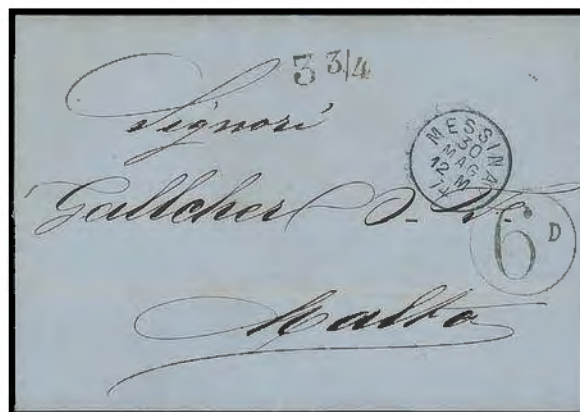 3 3/4
Signori
MESSINA
30
MAG
12 M
74
Gallcher & Co
6 D
Malta